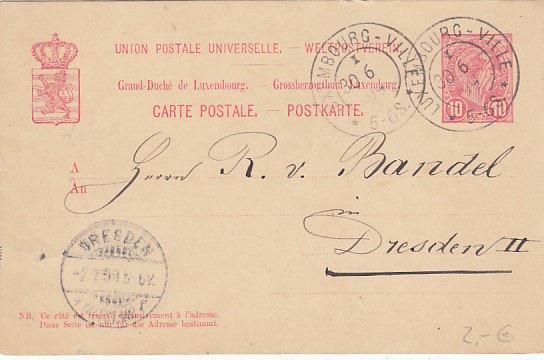 UNION POSTALE UNIVERSELLE. — WELTPOSTVEREIN.
Grand-Duché de Luxembourg. — Grossherzogthum Luxemburg.
CARTE POSTALE. — POSTKARTE.
LUXEMBOURG-VILLE
1
30 6
5-6S.
LUXEMBOURG-VILLE
30 6
5-6S.
10 10
A
An
Herrn R. v. Bandel
in
Dresden II
DRESDEN
ALTST.
-2.7.
NB. Ce côté est réservé exclusivement à l'adresse.
Diese Seite ist nur für die Adresse bestimmt.
2,-€